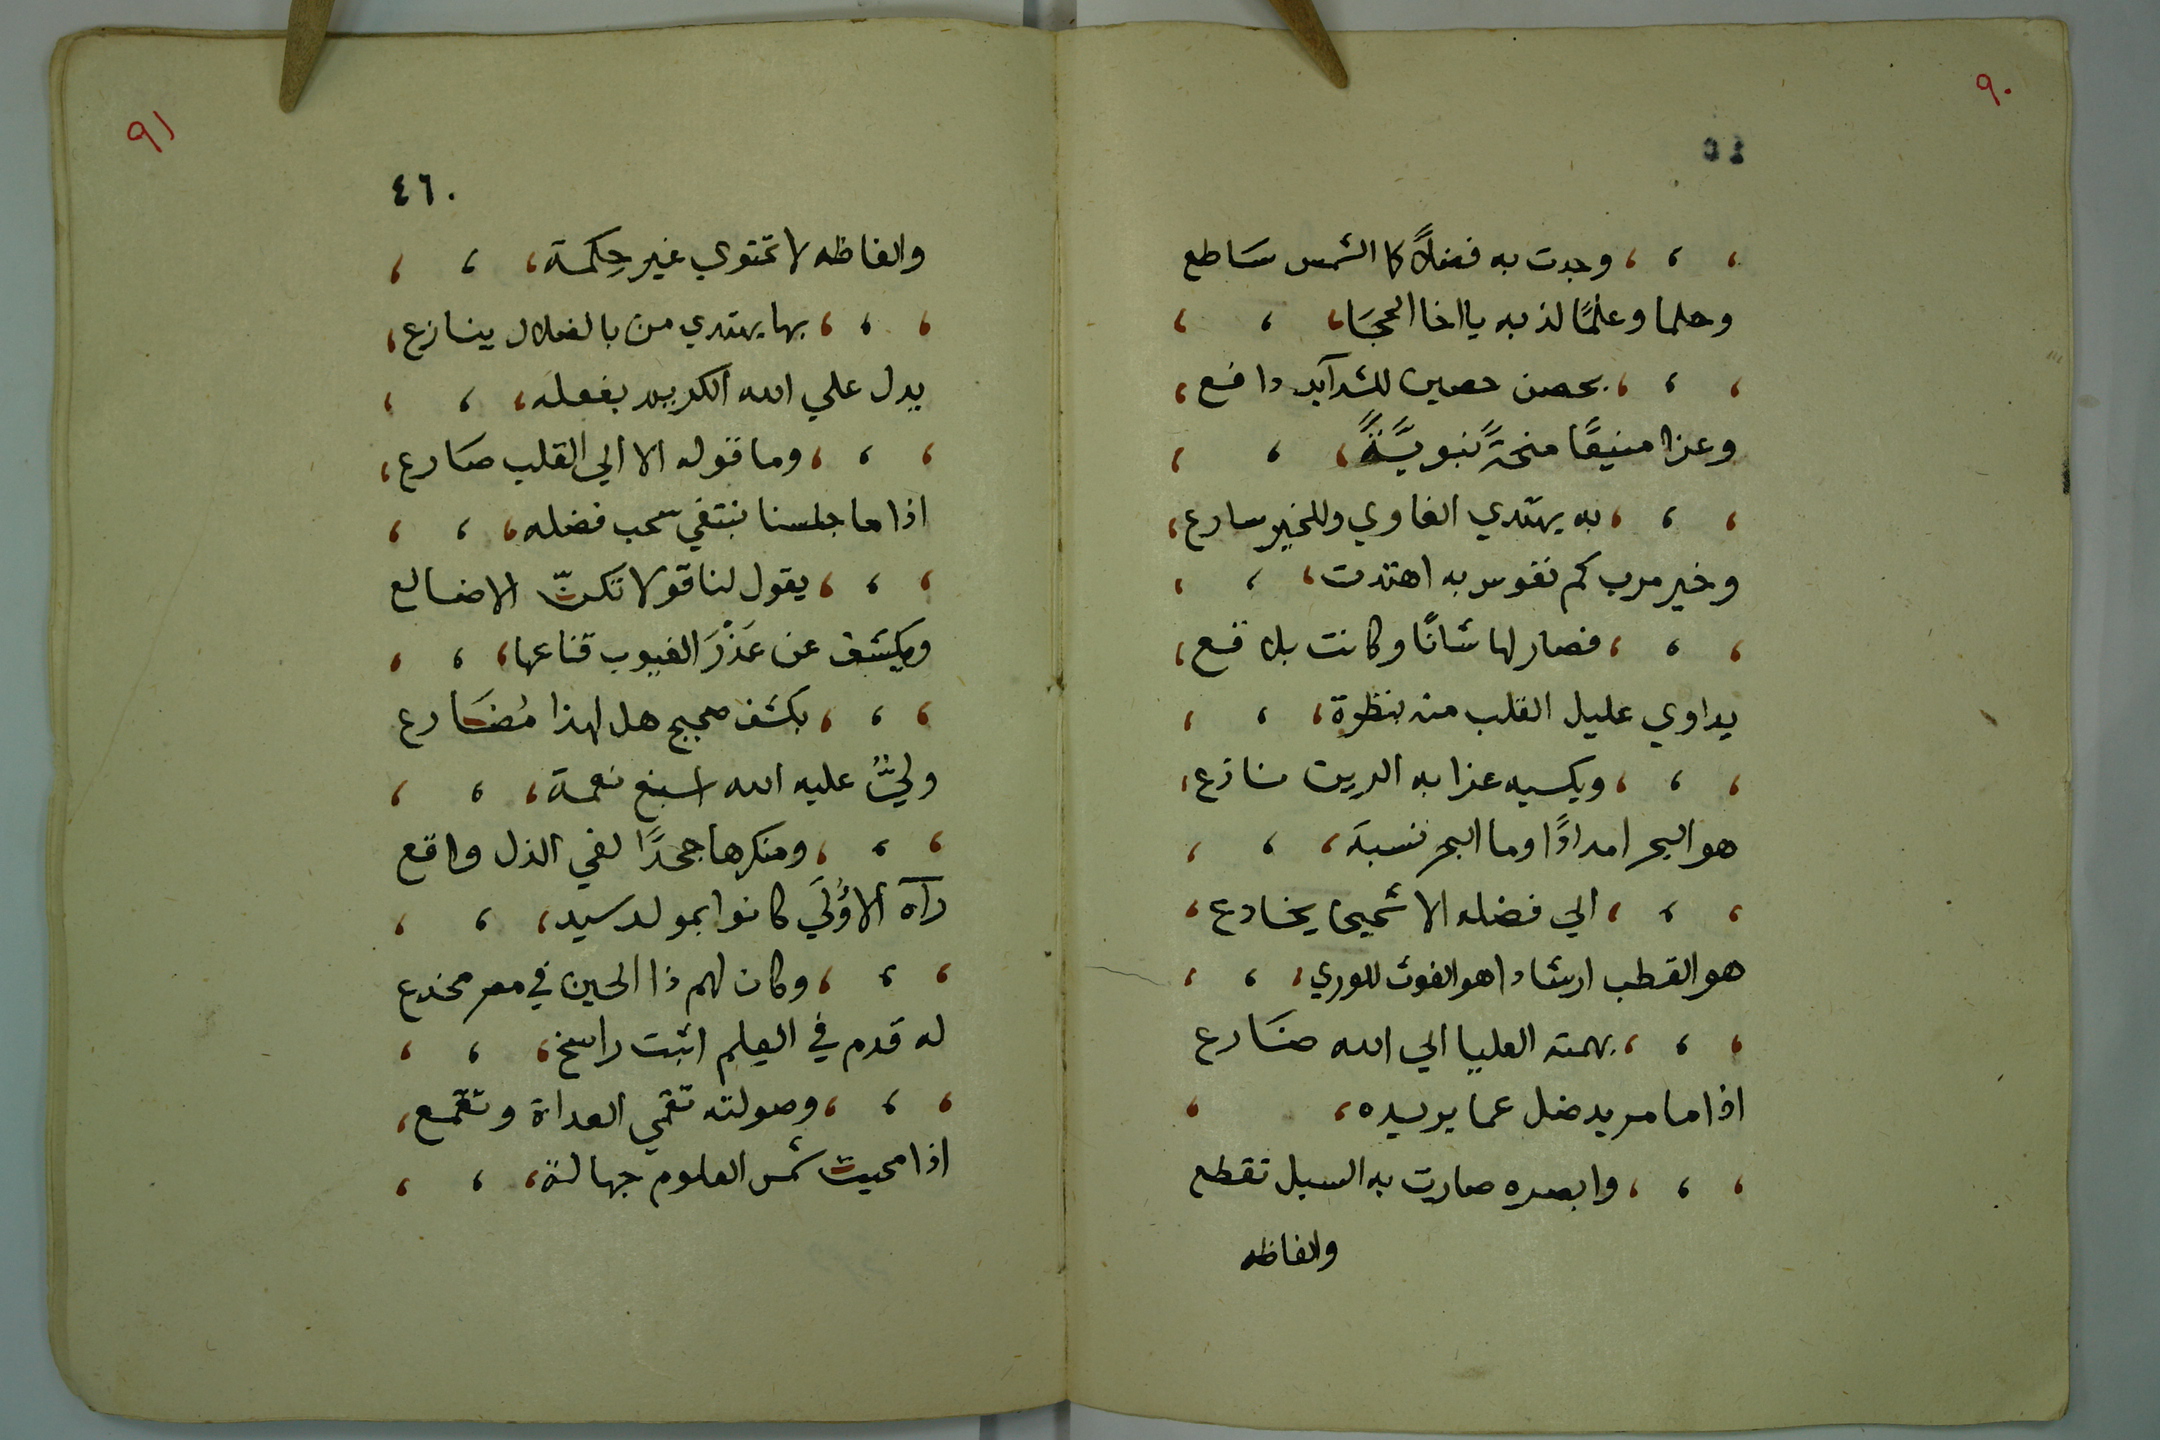 ٩٠
٤٥
، ، ، وجدت به فضلاً كا الشمس سَاطع
وحلما وعلمًا لذ به يااخا الحجَا، ، ،
، ، ، بحصن حصين للشدآيد دافع،
وعزا منيعًا منحةً نبويَّةً، ، ،
، ، ، به يهتدي الغاوي وللخير سارع،
وخير مرب كم نفوس به اهتدت، ، ،
، ، ، فصار لها شانًا وكانت بلاقع،
يداوي عليل القلب منه بنظرة، ، ،
، ، ، ويكسيه عزا به الدين نازع،
هو البحر امدادًا وما البحر نسبة، ، ،
، ، ، الي فضله الا شحيحا يخادع،
هو القطب ارشادا هو الغوث للوري، ، ،
، ، ، بهمته العليا الي الله ضَارع
اذا ما مريد ضل عما يريده، ،
، ، ، وابصره صارت به السبل تقطع
والفاظه
٩١
٤٦.
والفاظه لا تحتوي غير حِكمة، ، ،
، ، ، بها يهتدي من بالضلال ينازع،
يدل علي الله الكريم بفعله، ، ،
، ، ، وما قوله الا الي القلب صَارع،
اذا ما جلسنا نبتغي سحب فضله، ، ،
، ، ، يقول لنا قولا تكنّ الاضالع
ويكشف عن عَذْرَ الغيوب قناعها، ، ،
، ، ، بكشف صحيح هل لهذا مُضَارع
وليٌّ عليه الله اسبغ نعمة، ، ،
، ، ، ومنكرها جحدًا لفي الذل واقع
رآه الأُولَي كانوا بمولد سيد، ، ،
، ، ، وكان لهم ذا الحين في مصر مخدع
له قدم في العلم اثبت راسخ، ، ،
، ، ، وصولته تقمي العداة وتقمع،
اذا محيت شمس العلوم جهالة، ، ،